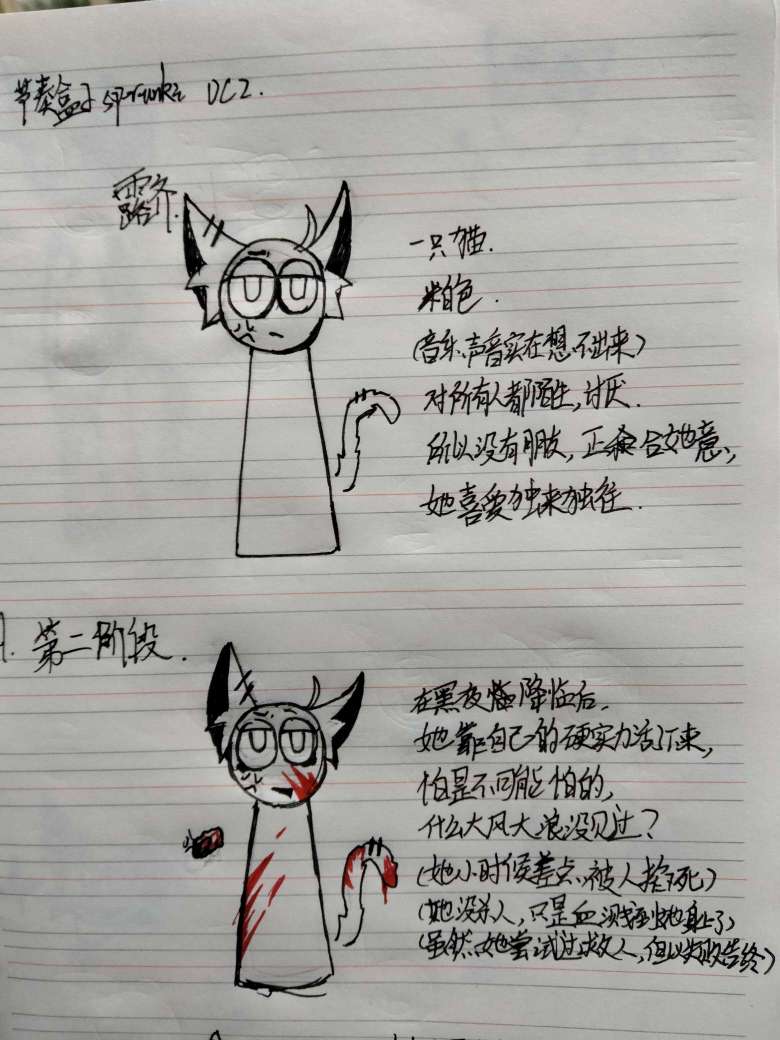 节奏盒子sprunki OC2.
露齐.
一只猫.
米白色.
(音乐、声音实在想不出来)
对所有人都陌生,讨厌.
所以没有朋友,正合她意,
她喜爱独来独往.
第二阶段.
在黑夜降临后,
她靠自己的硬实力活下来,
怕是不可能怕的,
什么大风大浪没见过?
(她小时候差点被人掐死)
(她没杀人,只是血溅到她身上了)
(虽然她尝试过救人,但以失败告终)